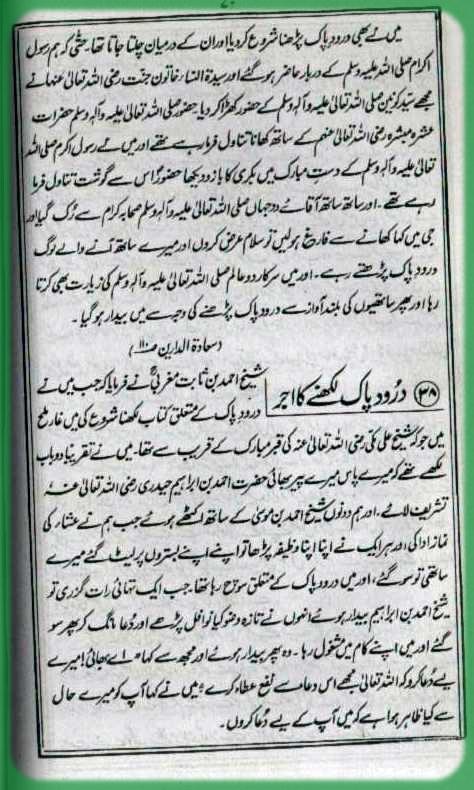 میں نے بھی درود پاک پڑھنا شروع کر دیا اور ان کے درمیان چلتا جاتا تھا۔ حتٰی کہ ہم رسول
اکرم صلی اللہ علیہ وسلم کے دربار حاضر ہو گئے اور سیدۃ النساء خاتون جنت رضی اللہ تعالیٰ عنہا نے
مجھے سید کونین صلی اللہ تعالیٰ علیہ وآلہٖ وسلم کے حضور کھڑا کر دیا۔ حضور صلی اللہ تعالیٰ علیہ وآلہٖ وسلم حضرات
عشرہ مبشرہ رضی اللہ تعالیٰ عنہم کے ساتھ کھانا تناول فرما رہے تھے اور میں نے رسول اکرم صلی اللہ
تعالیٰ علیہ وآلہٖ وسلم کے دست مبارک میں بکری کا بازو دیکھا حضور اس سے گوشت تناول فرما
رہے تھے۔ اور ساتھ ساتھ آقائے دو جہاں صلی اللہ تعالیٰ علیہ وآلہٖ وسلم صحابہ کرام سے رک گیا اور
جی میں کہا کھانے سے فارغ ہو لیں تو سلام عرض کروں اور میرے ساتھ آنے والے لوگ
درود پاک پڑھتے رہے۔ اور میں سرکار دو عالم صلی اللہ تعالیٰ علیہ وآلہٖ وسلم کی زیارت بھی کرتا
رہا اور پھر ساتھیوں کی بلند آواز سے درود پاک پڑھنے کی وجہ سے میں بیدار ہو گیا۔
(سعادۃ الدارین صنا۱۱)
(۳۸) درود پاک لکھنے کا اجر
شیخ احمد بن ثابت مغربیؒ نے فرمایا کہ جب میں نے
درود پاک کے متعلق کتاب لکھنا شروع کی میں غار ملح
میں جو کہ شیخ علی مکی رضی اللہ تعالیٰ عنہ کی قبر مبارک کے قریب سے تھا۔ میں نے تقریباً دو باب
لکھے تھے کہ میرے پاس میرے پیر بھائی حضرت احمد بن ابراہیم حیدری رضی اللہ تعالیٰ عنہ
تشریف لائے، اور ہم دونوں شیخ احمد بن موسیٰ کے ساتھ اکٹھے ہوئے جب ہم نے عشاء کی
نماز ادا کی، اور ہر ایک نے اپنا اپنا وظیفہ پڑھا تو اپنے اپنے بستروں پر لیٹ گئے میرے
ساتھی تو سو گئے، اور میں درود پاک کے متعلق سوچ رہا تھا۔ جب ایک تہائی رات گزری تو
شیخ احمد بن ابراہیم بیدار ہوئے انہوں نے تازہ وضو کیا نوافل پڑھے اور دعا مانگ کر پھر سو
گئے اور میں اپنے کام میں مشغول رہا۔ وہ پھر بیدار ہوئے اور مجھ سے کہا "اے بھائی! میرے
لیے دعا کرو کہ اللہ تعالیٰ مجھے اس دعا سے نفع عطاء کرے" میں نے کہا آپ کو میرے حال
سے کیا ظاہر ہوا ہے کہ میں آپ کے لیے دعا کروں۔